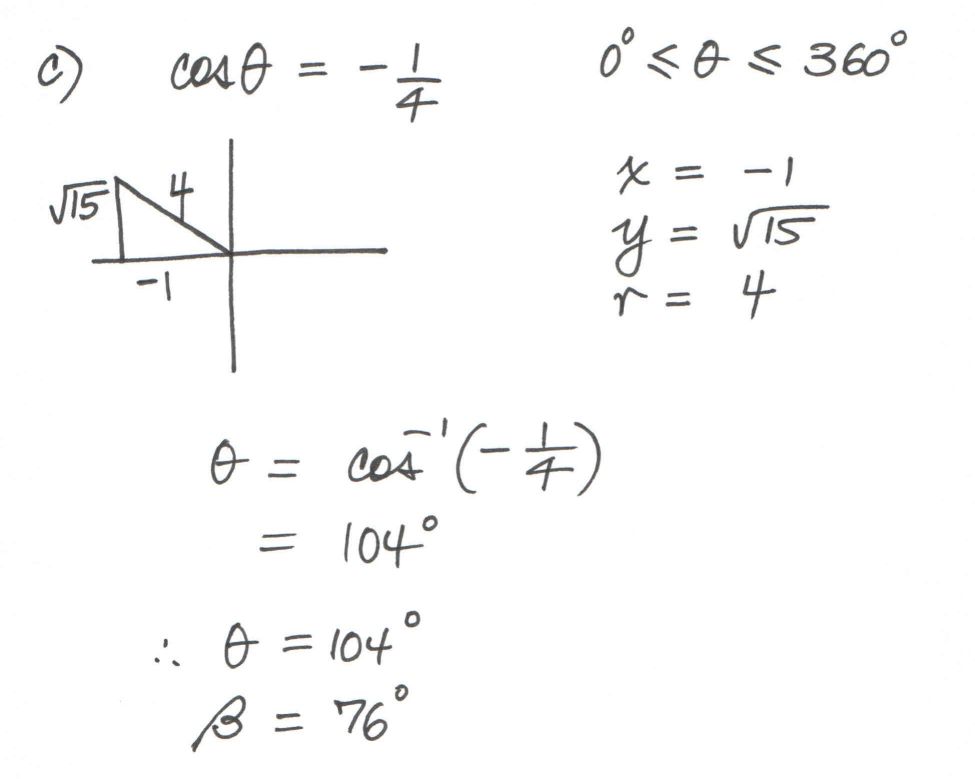 c) cosθ = -1/4 0° ≤ θ ≤ 360°
x = -1
√15 4
y = √15
-1
r = 4
θ = cos⁻¹(-1/4)
= 104°
∴ θ = 104°
β = 76°